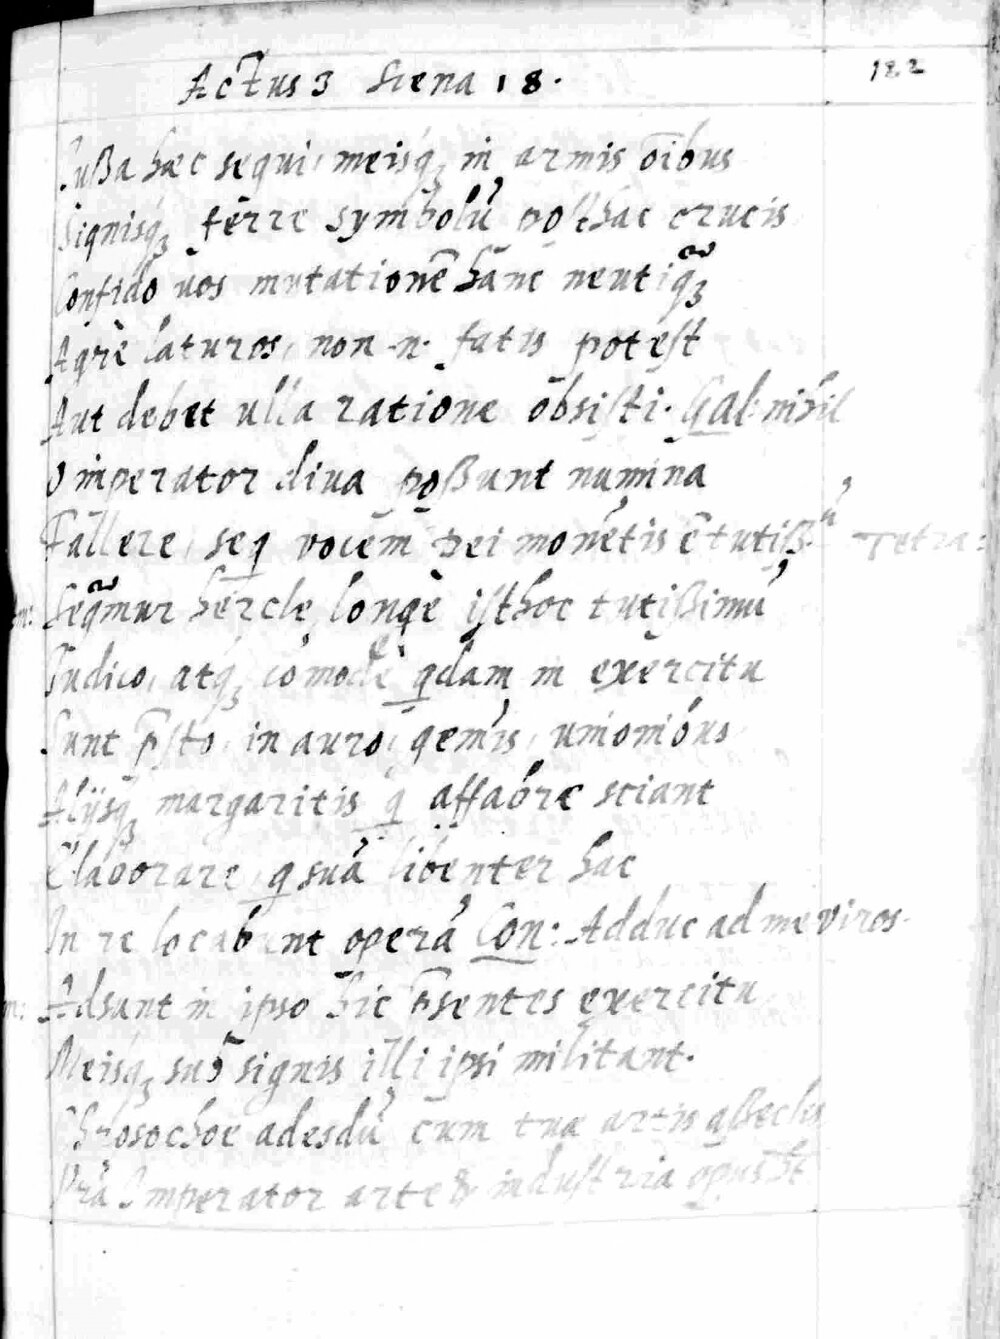 Actus 3 Scena 18. 122
Jußa hæc sequi, meisq₃ in armis oībus
Signisq₃ ferre symbolū posthac crucis
Confido vos mutationē hanc neutiq̃₃
Ægrè laturos, non .n. fatis potest
Aut debet ulla ratione obsisti. Gal: nihil
O imperator diva poßunt numina
Fallere, seq vocem Dei monētis ē tutißᵘ Tetra:
Seq̃mur hercle, longè isthoc tutißimū
Judico, atq₃ comodè qdam in exercitu
Sunt p̄sto, in auro, gemis, unionibus
Alijsq₃ margaritis q affabre sciant
Elaborare, q suā libenter hac
In re locabunt operā Con: Adduc ad me viros.
Adsunt in ipso hic p̄sentes exercitu
Meisq₃ sub signis illi ipsi militant.
Chrosochoe adesdū cum tuæ artis aßeclis
Vrā Imperator arte & industria opus ht